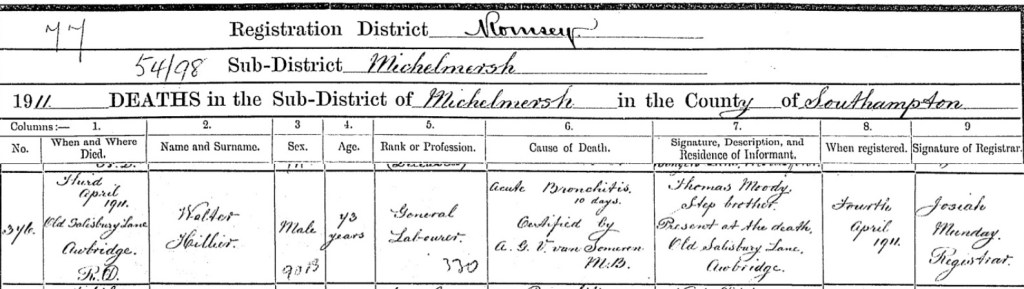 77
Registration District Romsey
54/98 Sub-District Michelmersh
1911 DEATHS in the Sub-District of Michelmersh in the County of Southampton
Columns:— 1. 2. 3 4. 5. 6. 7. 8. 9
No. When and Where Died. Name and Surname. Sex. Age. Rank or Profession. Cause of Death. Signature, Description, and Residence of Informant. When registered. Signature of Registrar.
346.
Third
April
1911.
Old Salisbury Lane
Awbridge.
R.D.
Walter
Hillier.
Male
43
years
General
Labourer.
330
Acute Bronchitis.
10 days.
Certified by
A. G. V. van Someren
M.B.
Thomas Moody.
Step brother.
Present at the death.
Old Salisbury Lane,
Awbridge.
Fourth
April
1911.
Josiah
Munday.
Registrar.